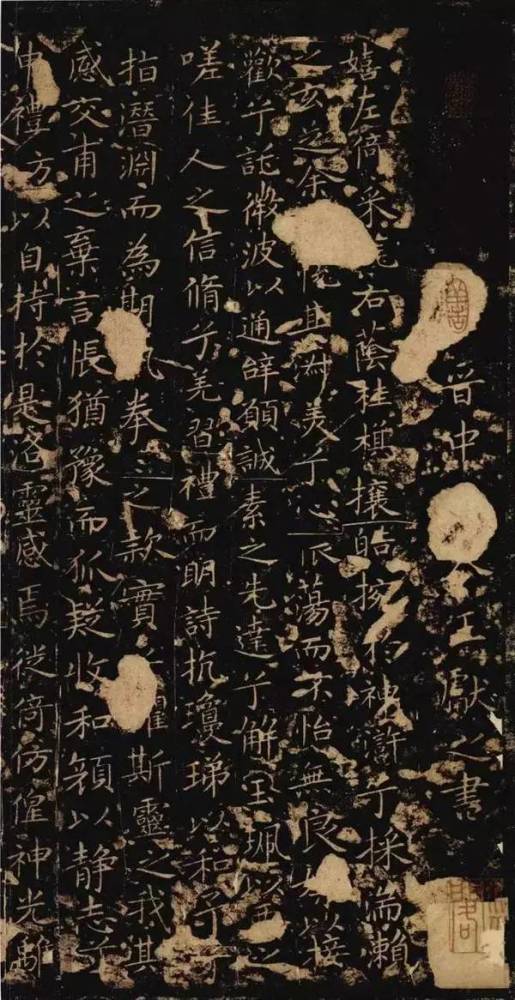 晉中王獻之書
嬉左倚采右蔭桂旗攘皓捥神滸兮採湍瀨
之玄芝余其淑美兮心振蕩而不怡無良以接
歡兮託微波以通辭願誠素之先達兮解玉珮以要之
嗟佳人之信脩兮羌習禮而明詩抗瓊珶以和予兮
指潛淵而為期執拳之款實懼斯靈之我其
感交甫之棄言悵猶豫而狐疑收和顏以靜志兮
申禮方以自持於是洛靈感焉徙倚仿偟神光離